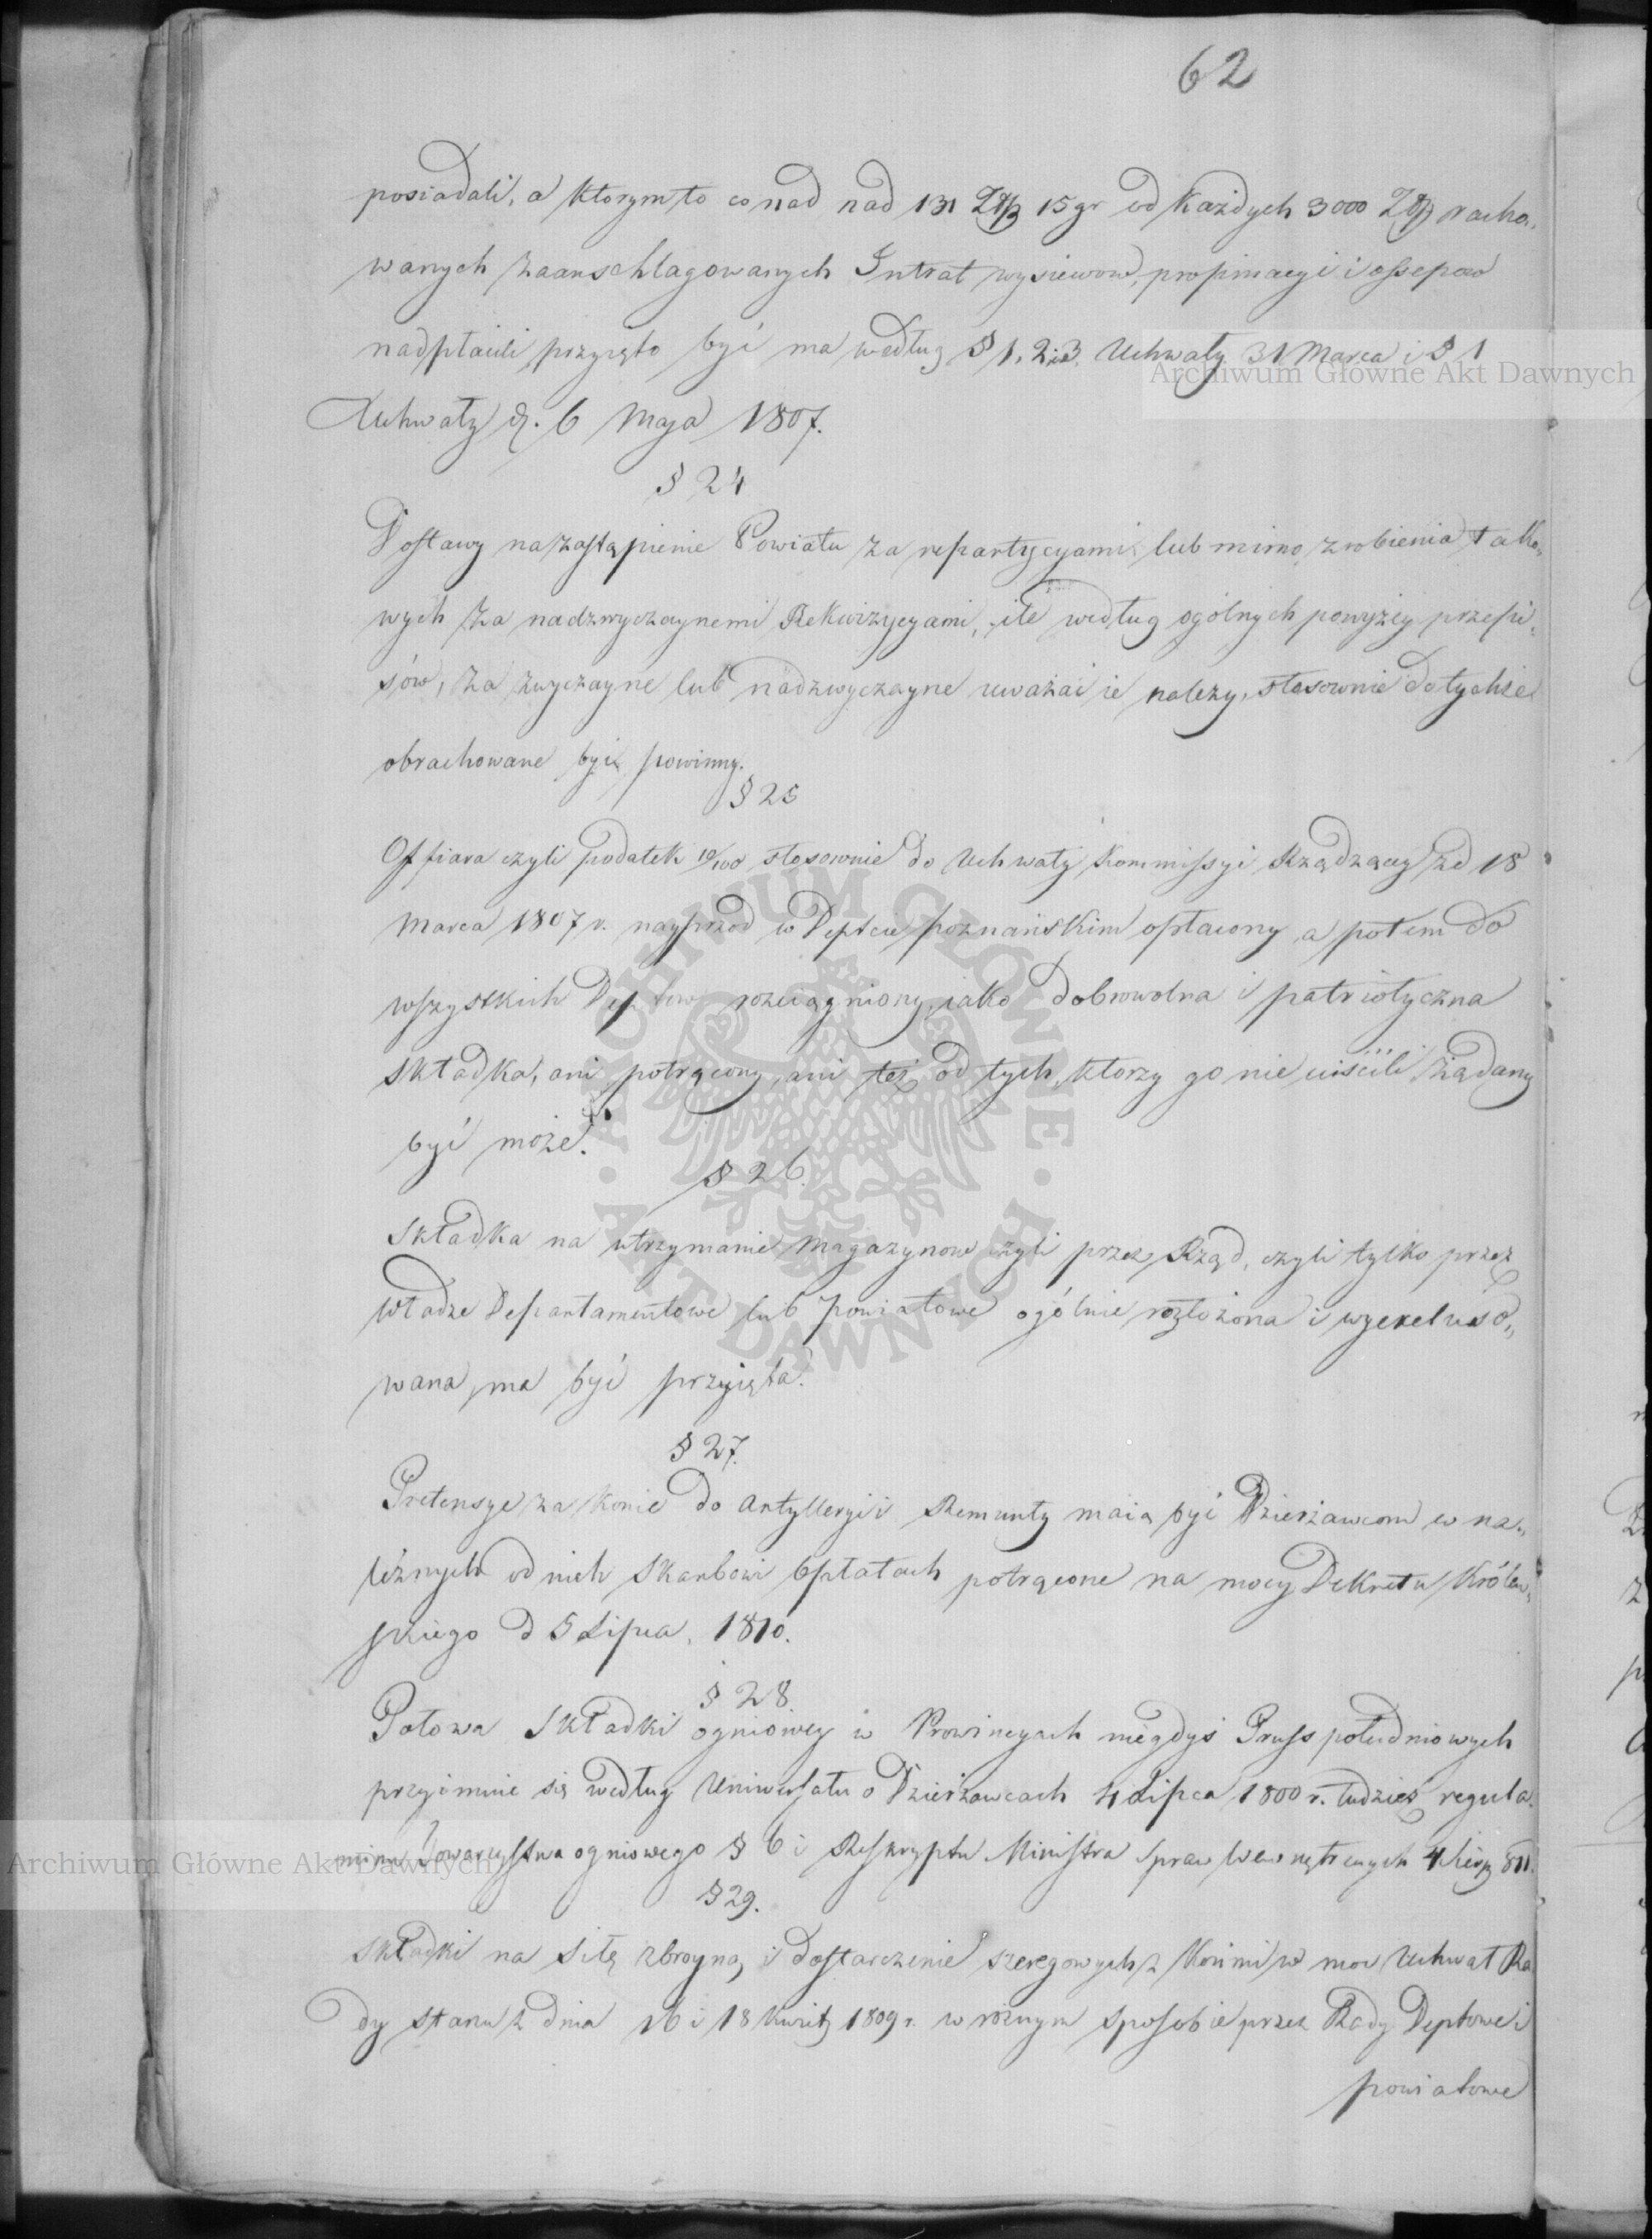 62
posiadali, a ktorym to co nad nad 131 Złp 15 gr od każdych 3000 Złp racho,
wanych zaanschlagowanych Intrat wysiewow, propinacyi i ossepow
nadpłacili, przyięto być ma według § 1, 2 i 3 Uchwały 31 Marca i § 1
Uchwały d. 6 Maja 1807.
§ 24
Dostawy na zastąpienie Powiatu za repartycyami lub mimo zrobienia tako,,
wych za nadzwyczaynemi Rekwizycyami, ile według ogólnych powyżey przepi,
sów, za zwyczayne lub nadzwyczayne uważać ie należy, stosownie do tychże
obrachowane być powinny.
§ 25
Offiara czyli podatek 10/100 stosownie do Uchwały Kommissyi Rządzącey ze d 18
Marca 1807 r. nayprzod w Deptcie poznańskim opłacony, a potem do
wszystkich Deptow rozciągniony, iako dobrowolna i patriotyczna
składka, ani potrącony, ani też od tych, ktorzy go nie uiścili żądany
być może.
§ 26.
Składka na utrzymanie Magazynow czyli przez Rząd, czyli tylko przez
Władze Departamentowe lub powiatowe ogólnie rozłożona i wyexekwo,,
wana, ma być przyięta.
§ 27.
Pretensye za konie do Artylleryi i Remunty maią być Dzierżawcom w na,,
leżnych od nich Skarbowi opłatach potrącone na mocy Dekretu Królew,
skiego d 5 Lipca, 1810.
§ 28.
Połowa Składki ogniowey w Prowincyach niegdyś Pruss południowych
przyimuie się według Uniwersału o Dzierżawcach 4 Lipca 1800 r. tudzież regula,
minu Towarzystwa ogniowego § 6 i Reskryptu Ministra Spraw Wewnętrznych 4 Sierp 811.
§ 29.
Składki na siłę zbroyną i dostarczenie szeregowych z końmi w moc Uchwał Ra
dy Stanu z dnia 16 i 18 Kwiet 1809 r. w roznym sposobie przez Rady Deptowe i
powiatowe
Archiwum Główne Akt Dawnych
ARCHIWUM GŁÓWNE AKT DAWNYCH
Archiwum Główne Akt Dawnych